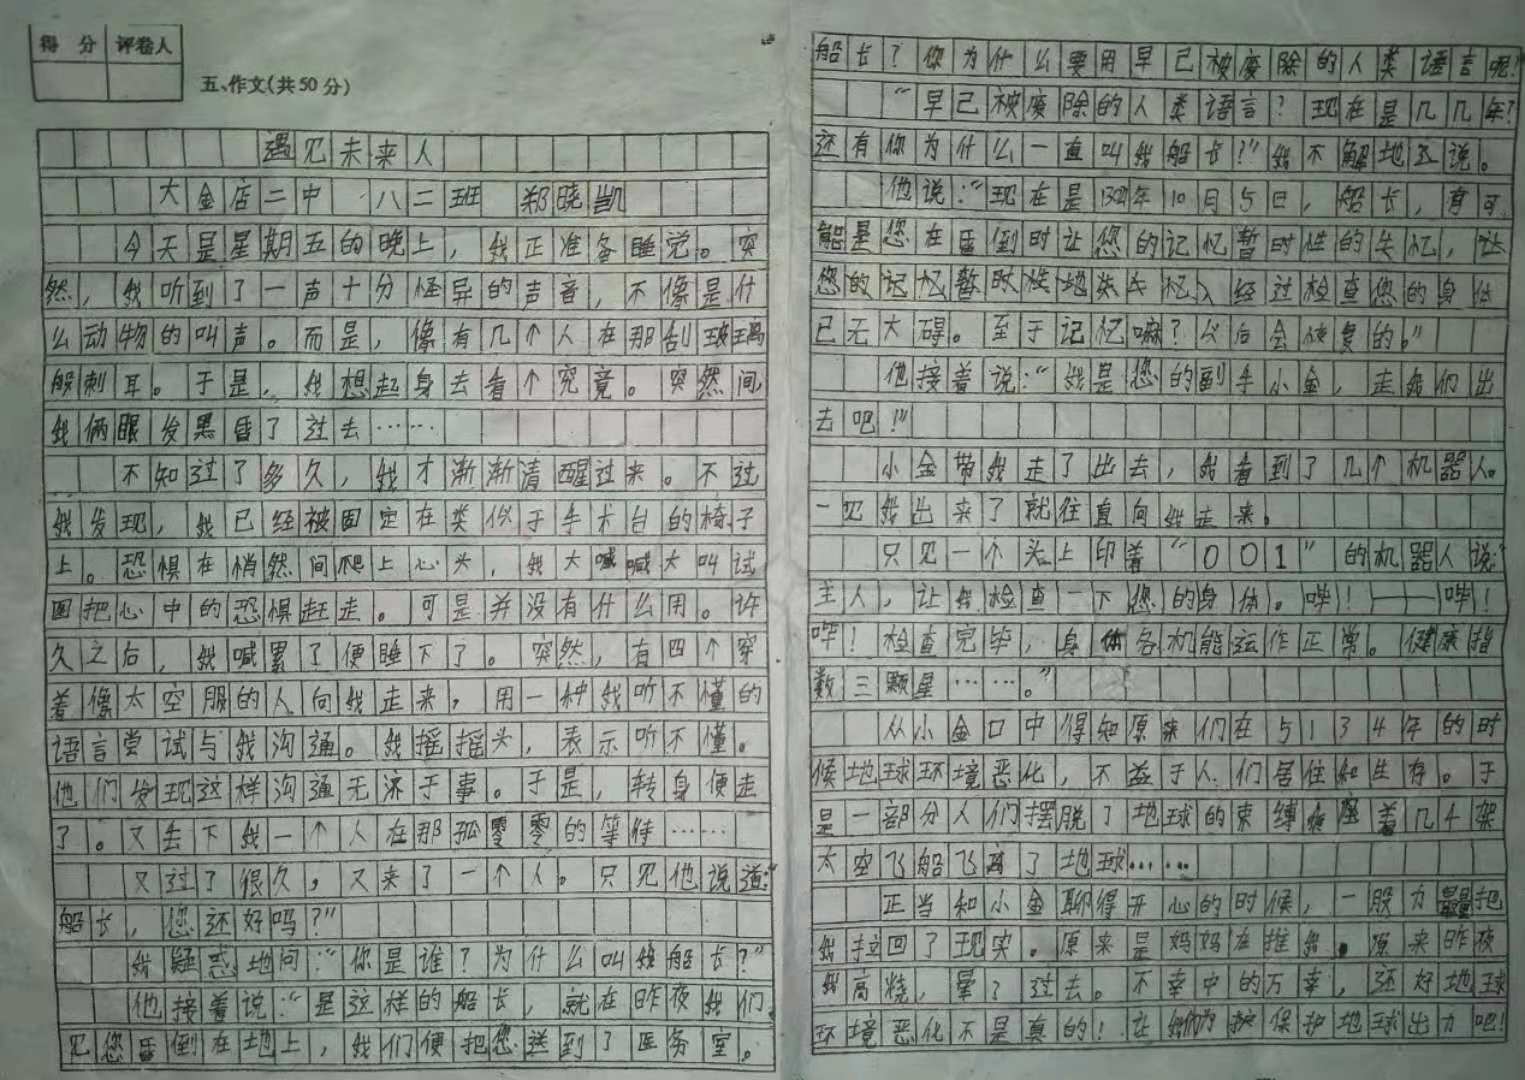 得 分 评卷人
五、作文(共50分)
遇见未来人
大金店二中 八二班 郑晓凯
今天是星期五的晚上，我正准备睡觉。突
然，我听到了一声十分怪异的声音，不像是什
么动物的叫声。而是，像有几个人在那刮玻璃
般刺耳。于是，我想起身去看个究竟。突然间，
我俩眼发黑昏了过去……
不知过了多久，我才渐渐清醒过来。不过
我发现，我已经被固定在类似于手术台的椅子
上。恐惧在悄然间爬上心头，我大喊喊大叫试
图把心中的恐惧赶走。可是并没有什么用。许
久之后，我喊累了便睡下了。突然，有四个穿
着像太空服的人向我走来，用一种我听不懂的
语言尝试与我沟通。我摇摇头，表示听不懂。
他们发现这样沟通无济于事。于是，转身便走
了。又丢下我一个人在那孤零零的等待……
又过了很久，又来了一个人。只见他说道：“
船长，您还好吗？”
我疑惑地问：“你是谁？为什么叫我船长？”
他接着说：“是这样的船长，就在昨夜我们
见您昏倒在地上，我们便把您送到了医务室。
船长？您为什么要用早已被废除的人类语言呢？”
“早已被废除的人类语言？现在是几几年？
还有你为什么一直叫我船长？”我不解地说。
他说：“现在是年10月5日，船长，有可
能是您在昏倒时让您的记忆暂时性的失忆，让
您的记忆暂时性地失忆入经过检查您的身体
已无大碍。至于记忆嘛？以后会恢复的。”
他接着说：“我是您的副手小金，走我们出
去吧！”
小金带我走了出去，我看到了几个机器人。
一见我出来了就往直向我走来。
只见一个头上印着“001”的机器人说：“
主人，让我检查一下您的身体。哔！——哔！
哔！检查完毕，身体各机能运作正常。健康指
数三颗星……。”
从小金口中得知原来们在5134年的时
候地球环境恶化，不益于人们居住和生存。于
是一部分人们摆脱了地球的束缚座着几十架
太空飞船飞离了地球……
正当和小金聊得开心的时候，一股力量把
我拉回了现实。原来是妈妈在推我。原来昨夜
我高烧，晕了过去。不幸中的万幸，还好地球
环境恶化不是真的！让我们为保护地球出力吧！